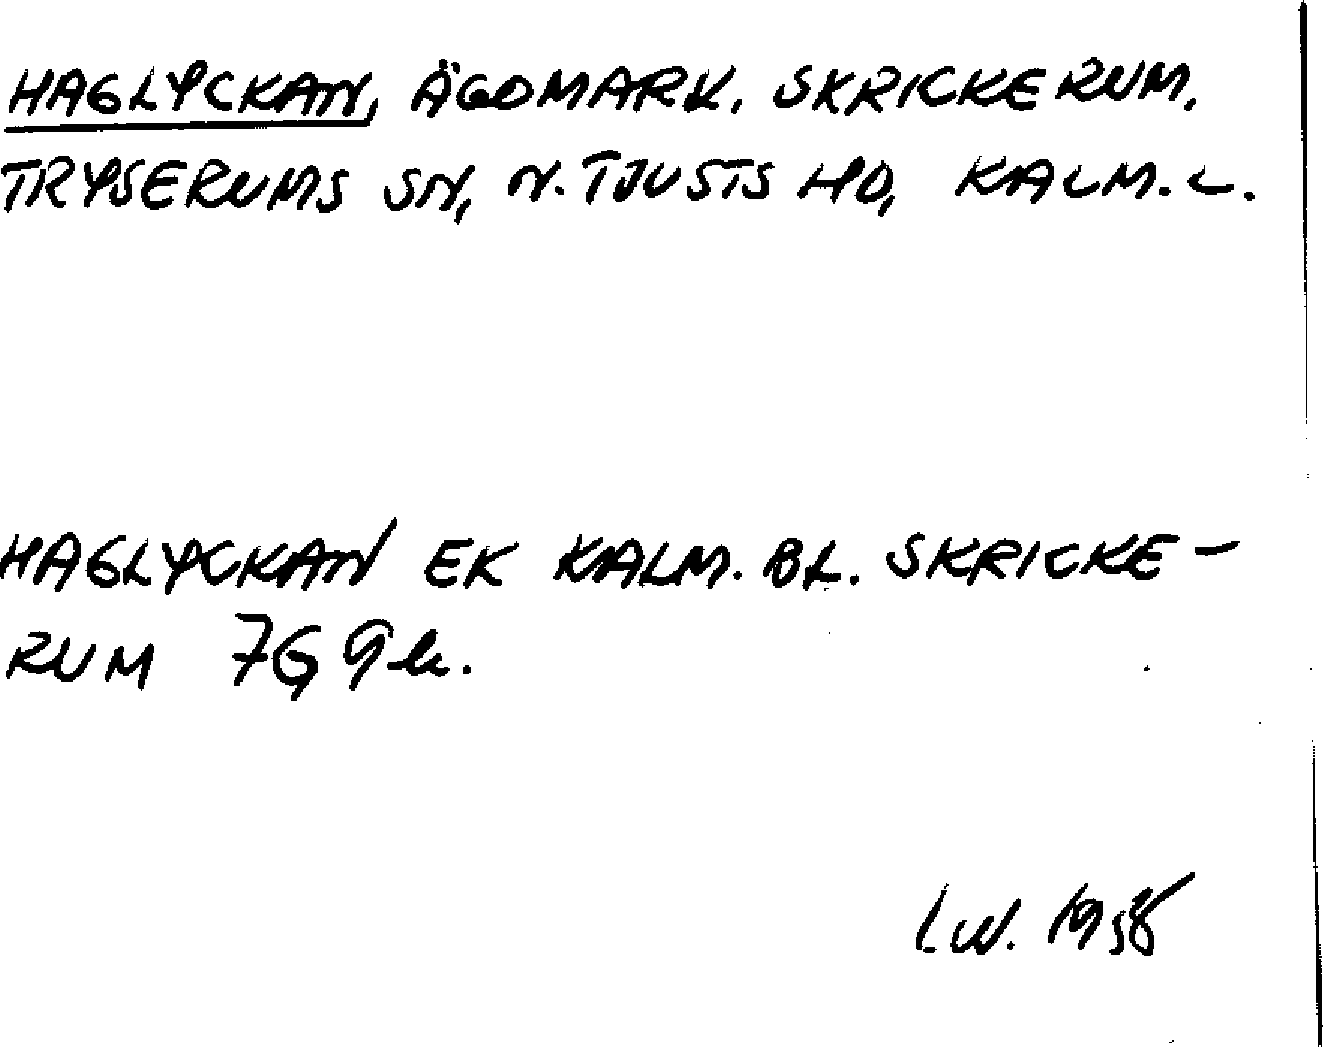 HAGLYCKAN, ÄGOMARK, SKRICKERUM,
TRYSERUMS SN, N. TJUSTS HD, KALM. L.
HAGLYCKAN EK KALM. BL. SKRICKE-
RUM 7G 9h.
LW. 1958